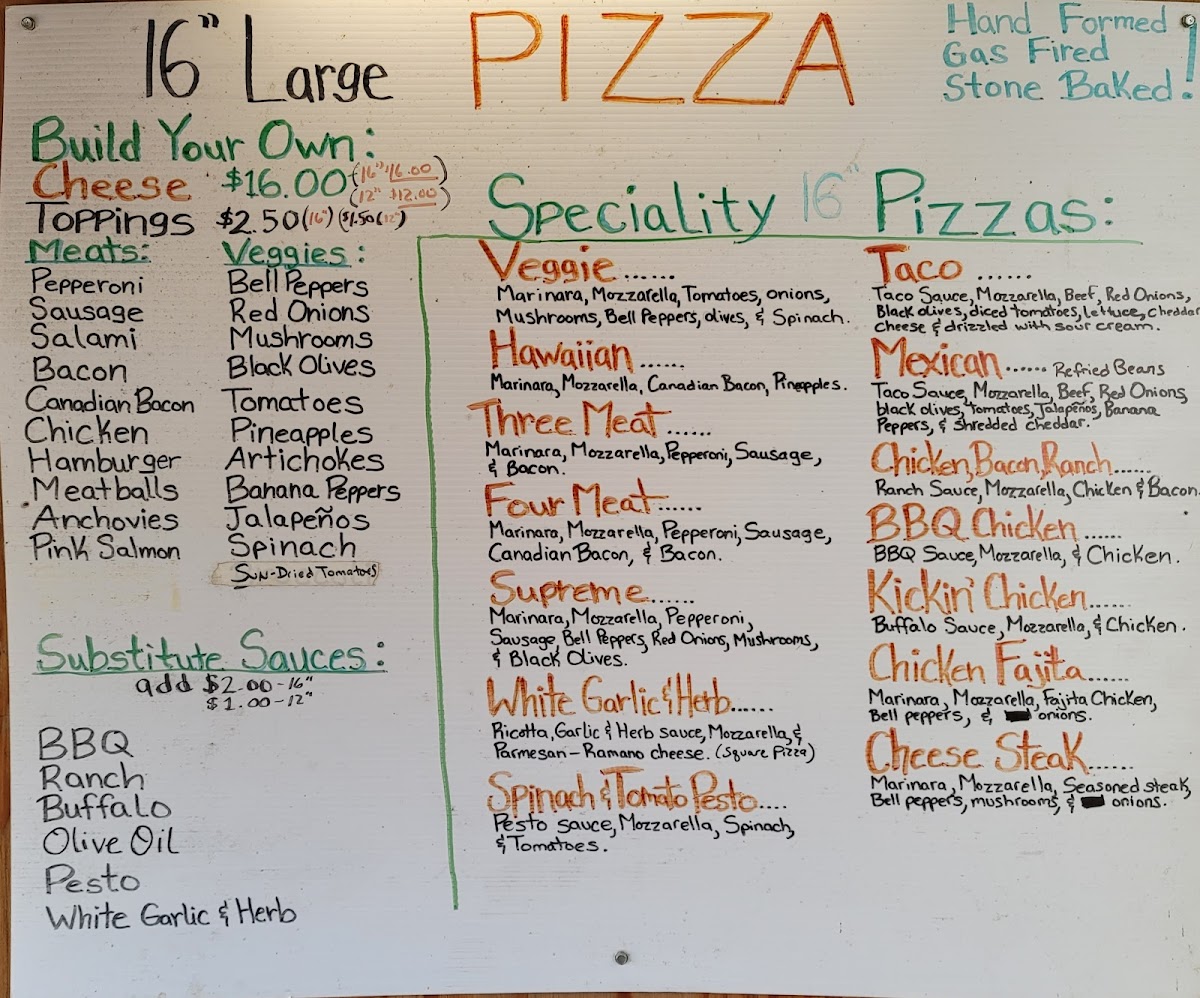 16" Large PIZZA
Hand Formed
Gas Fired
Stone Baked!
Build Your Own:
Cheese $16.00 (16" $16.00)
(12" $12.00)
Toppings $2.50 (16") ($1.50 (12")
Meats:
Pepperoni
Sausage
Salami
Bacon
Canadian Bacon
Chicken
Hamburger
Meatballs
Anchovies
Pink Salmon
Veggies:
Bell Peppers
Red Onions
Mushrooms
Black Olives
Tomatoes
Pineapples
Artichokes
Banana Peppers
Jalapeños
Spinach
Sun-Dried Tomatoes
Substitute Sauces:
add $2.00-16"
$1.00-12"
BBQ
Ranch
Buffalo
Olive Oil
Pesto
White Garlic & Herb
Speciality 16" Pizzas:
Veggie......
Marinara, Mozzarella, Tomatoes, onions,
Mushrooms, Bell Peppers, olives, & Spinach.
Hawaiian......
Marinara, Mozzarella, Canadian Bacon, Pineapples.
Three Meat......
Marinara, Mozzarella, Pepperoni, Sausage,
& Bacon.
Four Meat......
Marinara, Mozzarella, Pepperoni, Sausage,
Canadian Bacon, & Bacon.
Supreme......
Marinara, Mozzarella, Pepperoni,
Sausage, Bell Peppers, Red Onions, Mushrooms,
& Black Olives.
White Garlic & Herb......
Ricotta, Garlic & Herb sauce, Mozzarella, &
Parmesan-Ramano cheese. (Square Pizza)
Spinach & Tomato Pesto....
Pesto sauce, Mozzarella, Spinach,
& Tomatoes.
Taco ......
Taco Sauce, Mozzarella, Beef, Red Onions,
Black olives, diced tomatoes, lettuce, cheddar
cheese & drizzled with sour cream.
Mexican...... Refried Beans
Taco Sauce, Mozzarella, Beef, Red Onions,
black olives, Tomatoes, Jalapeños, Banana
Peppers, & shredded cheddar.
Chicken, Bacon, Ranch......
Ranch Sauce, Mozzarella, Chicken & Bacon.
BBQ Chicken ......
BBQ Sauce, Mozzarella, & Chicken.
Kickin' Chicken......
Buffalo Sauce, Mozzarella, & Chicken.
Chicken Fajita......
Marinara, Mozzarella, Fajita Chicken,
Bell peppers, & onions.
Cheese Steak......
Marinara, Mozzarella, Seasoned steak,
Bell peppers, mushrooms, & onions.